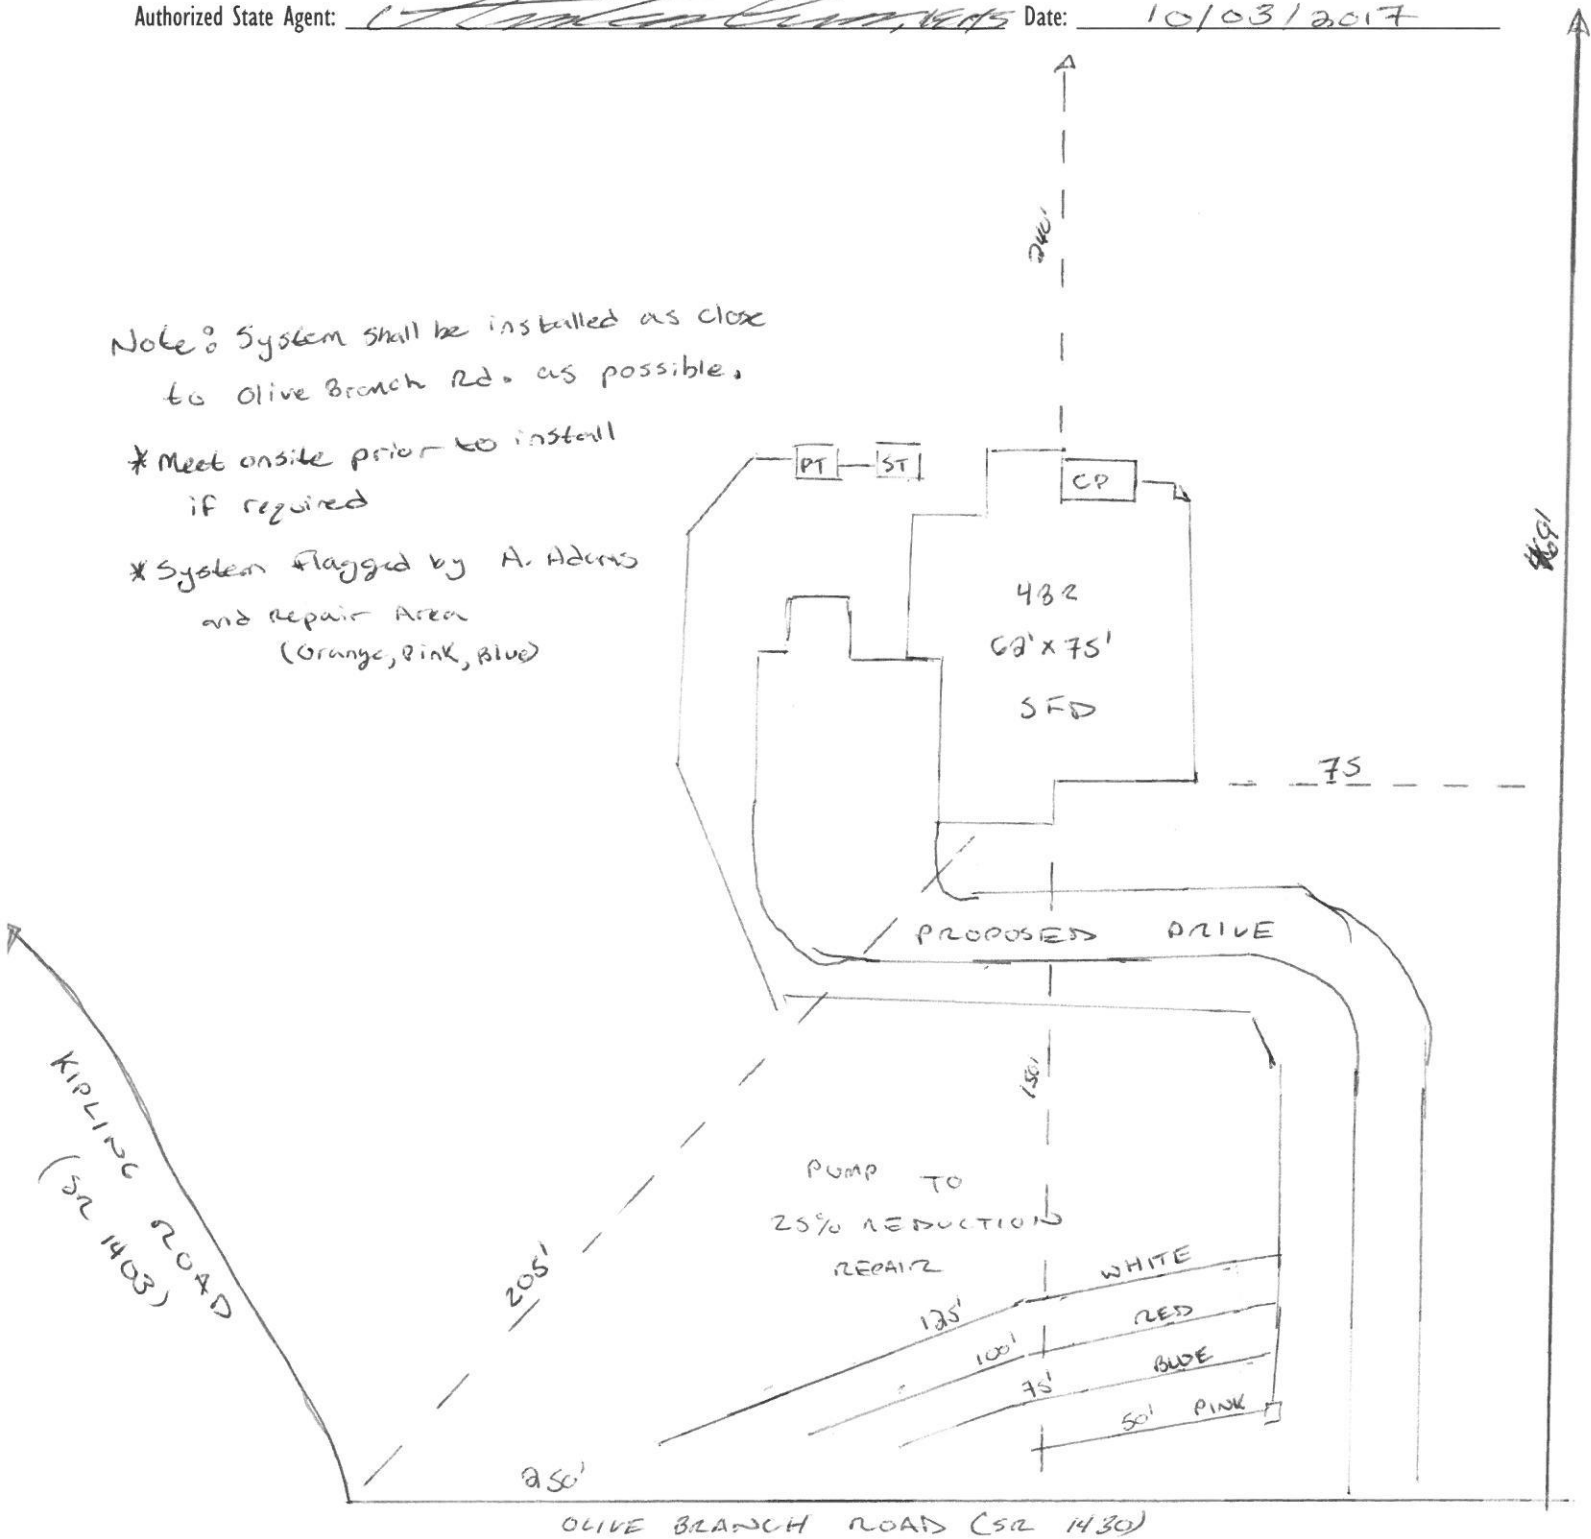 Authorized State Agent: Date: 10/03/2017
240'
Note: System shall be installed as close
to Olive Branch Rd. as possible.
* Meet onsite prior to install
if required
* System Flagged by A. Adams
and Repair Area
(Orange, Pink, Blue)
PT ST
CP
62' x 75'
SFD
75
PROPOSED DRIVE
150'
KIPLING ROAD
(SR 1403)
PUMP TO
25% REDUCTION
REPAIR
205'
125' WHITE
100' RED
75' BLUE
50' PINK
250'
OLIVE BRANCH ROAD (SR 1430)